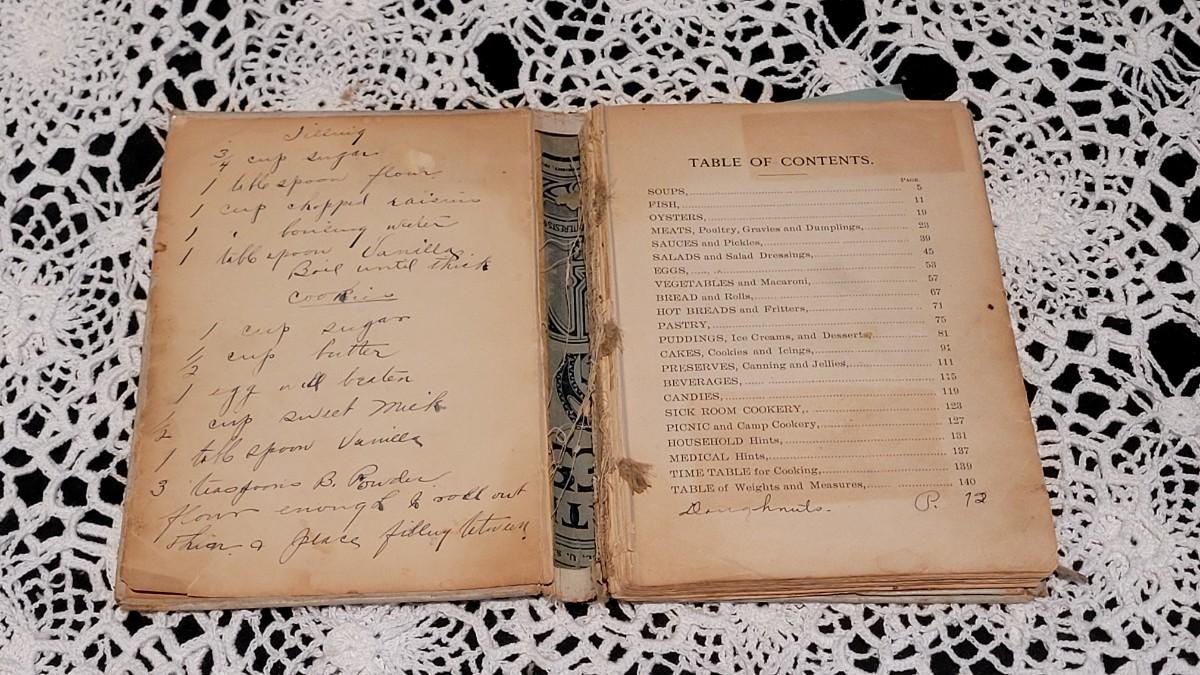 Filling
3/4 cup sugar
1 tabl spoon flour
1 cup chopped raisins
1 " boiling water
1 tabl spoon Vanilla
Boil until thick
Cookies
1 cup sugar
1/2 cup butter
1 egg well beaten
1/2 cup sweet Milk
1 tabl spoon Vanilla
3 teaspoons B. Powder
flour enough to roll out
thin & place filling between
TABLE OF CONTENTS.
PAGE.
SOUPS, 5
FISH, 11
OYSTERS, 19
MEATS, Poultry, Gravies and Dumplings, 23
SAUCES and Pickles, 39
SALADS and Salad Dressings, 45
EGGS, 53
VEGETABLES and Macaroni, 57
BREAD and Rolls, 67
HOT BREADS and Fritters, 71
PASTRY, 75
PUDDINGS, Ice Creams, and Desserts, 81
CAKES, Cookies and Icings, 91
PRESERVES, Canning and Jellies, 111
BEVERAGES, 115
CANDIES, 119
SICK ROOM COOKERY, 123
PICNIC and Camp Cookery, 127
HOUSEHOLD Hints, 131
MEDICAL Hints, 137
TIME TABLE for Cooking, 139
TABLE of Weights and Measures, 140
Doughnuts. P. 72